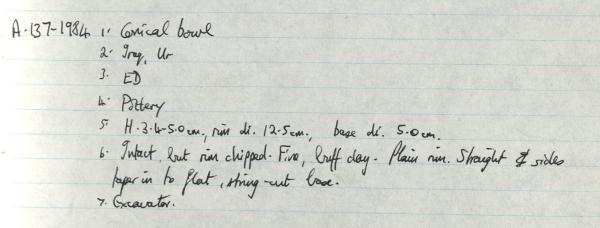 A.137-1984 1. Conical bowl
2. Iraq, Ur
3. ED
4. Pottery
5. H. 3.4-5.0cm., rim di. 12.5cm., base di. 5.0cm.
6. Intact, but rim chipped. Fine, buff clay. Plain rim. Straight sides
taper in to flat, string-cut base.
7. Excavator.